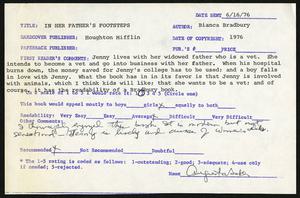 DATE SENT 6/16/76
TITLE: IN HER FATHER'S FOOTSTEPS AUTHOR: Bianca Bradbury
HARDCOVER PUBLISHER: Houghton Mifflin DATE OF COPYRIGHT 1976
PAPERBACK PUBLISHER: PUB.'S # PRICE
FIRST READER'S COMMENT: Jenny lives with her widowed father who is a vet. She
intends to become a vet and go into business with her father. When his hospital
burns down, the money saved for Jenny's college has to be used and a boy falls
in love with Jenny. What the book has in its favor is that Jenny is involved
with animals, which I think kids will like; that she's a vet; and of
course, it has the readability of a Bradbury book.
This book would appeal mostly to boys girls x equally to both
Readability: Very Easy Easy Average x Difficult Very Difficult
Other Comments:
I thoroughly enjoyed the book. It is modern but not
sensational - Jenny is lively and aware of
Recommended x Not Recommended Doubtful
* The 1-5 rating is coded as follows: 1-outstanding; 2-good; 3-adequate; 4-use only
if needed; 5-reject.
Name Augusta Baker